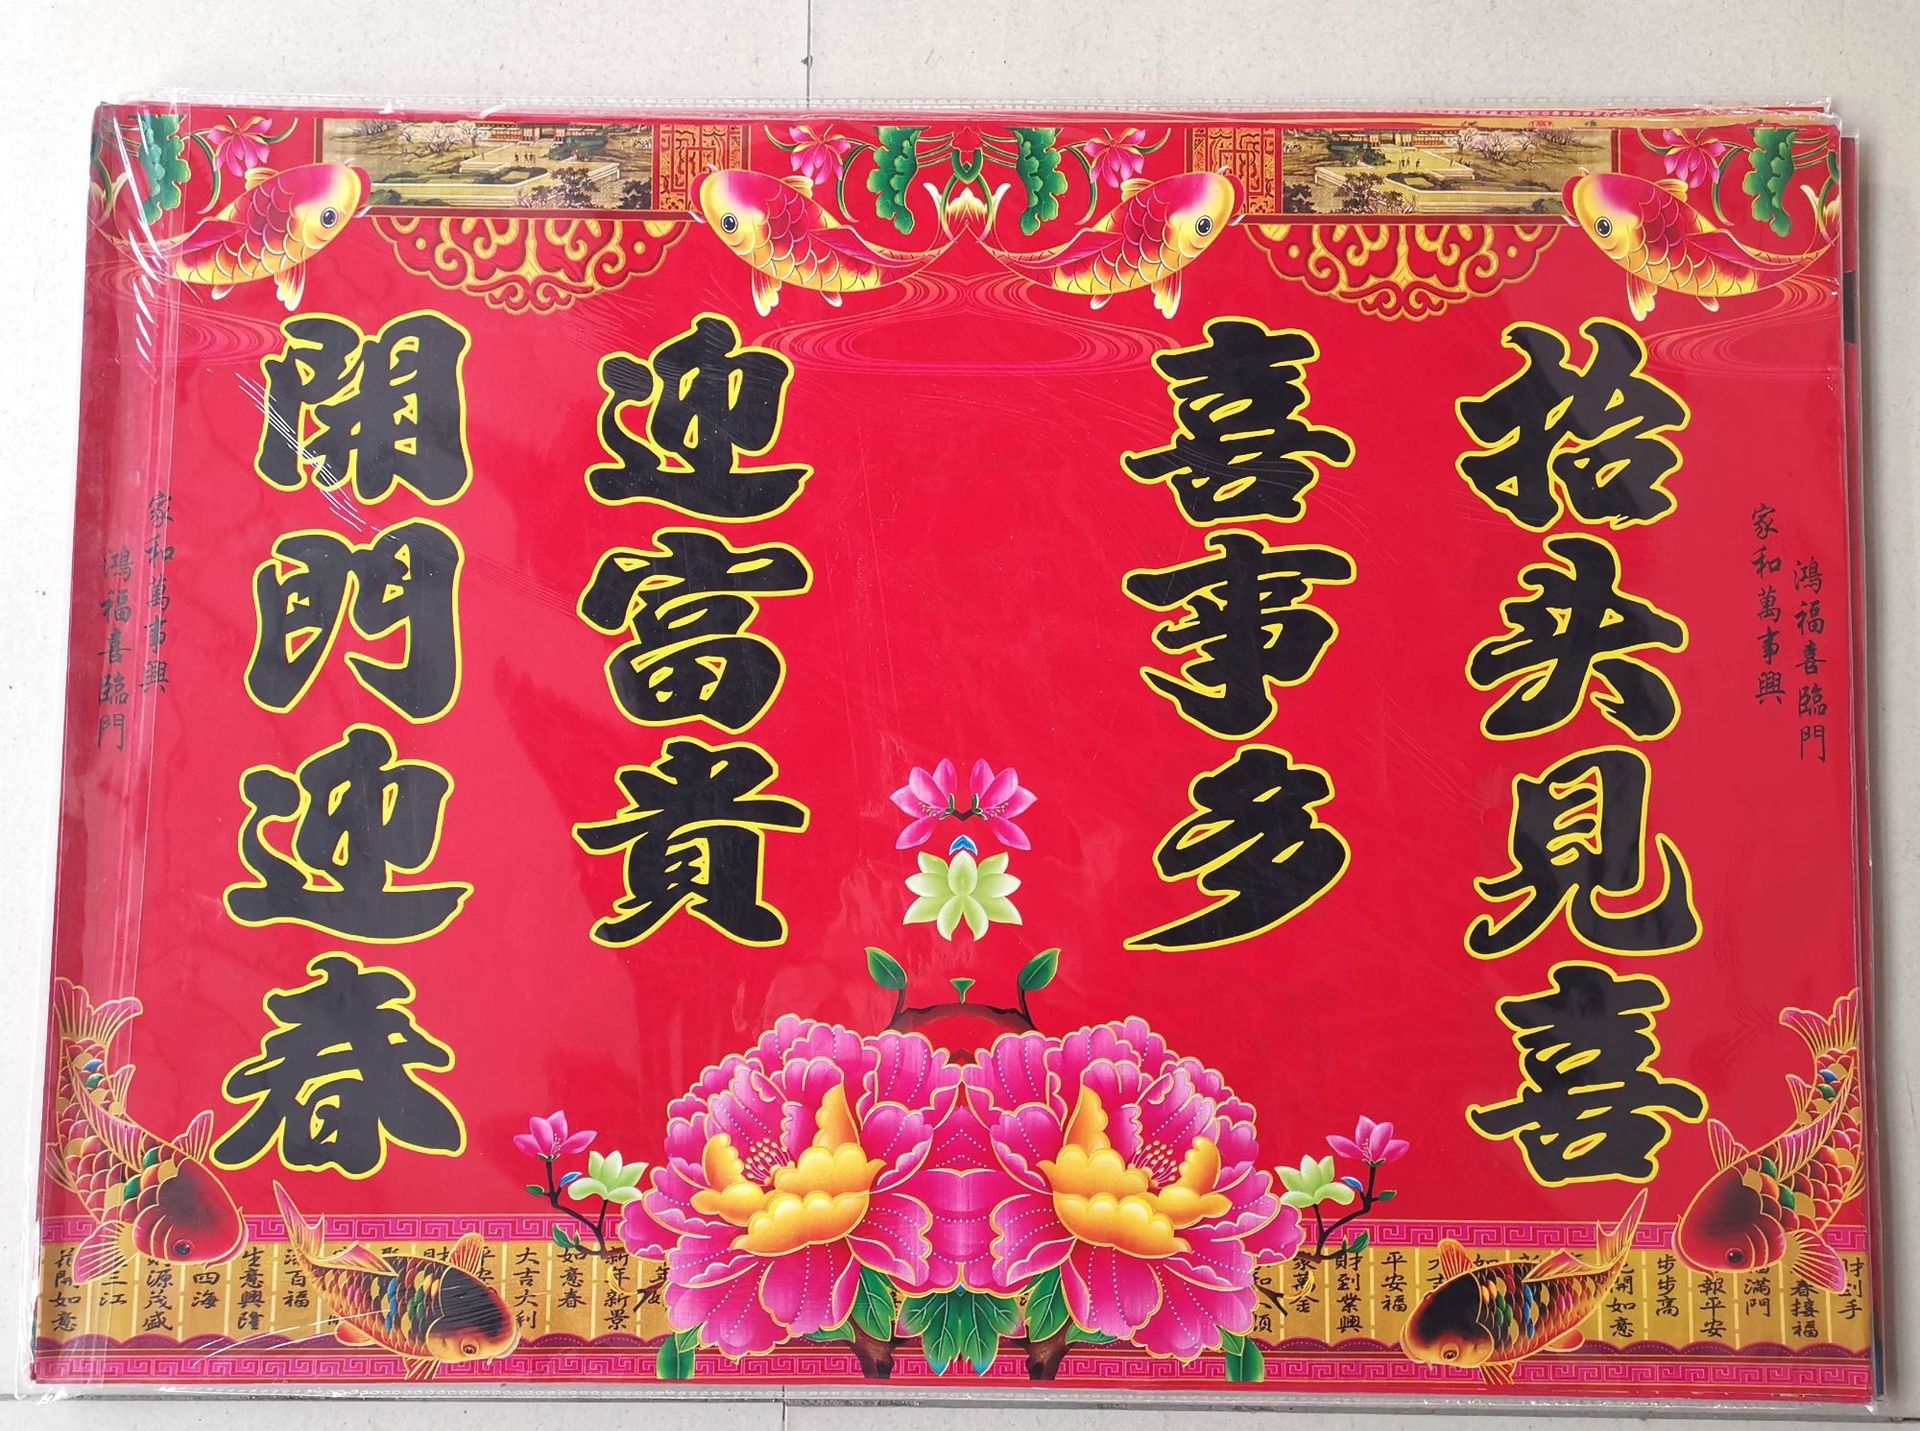 鴻福喜臨門
家和萬事興
抬头見喜
喜事多
迎富貴
開門迎春
家和萬事興
鴻福喜臨門
到手
春接福
滿門
報平安
步步高
開如意
平安福
財到業興
家萬金
新年新景
如意春
大吉大利
百福
生意興隆
四海
源茂盛
三江
花開如意